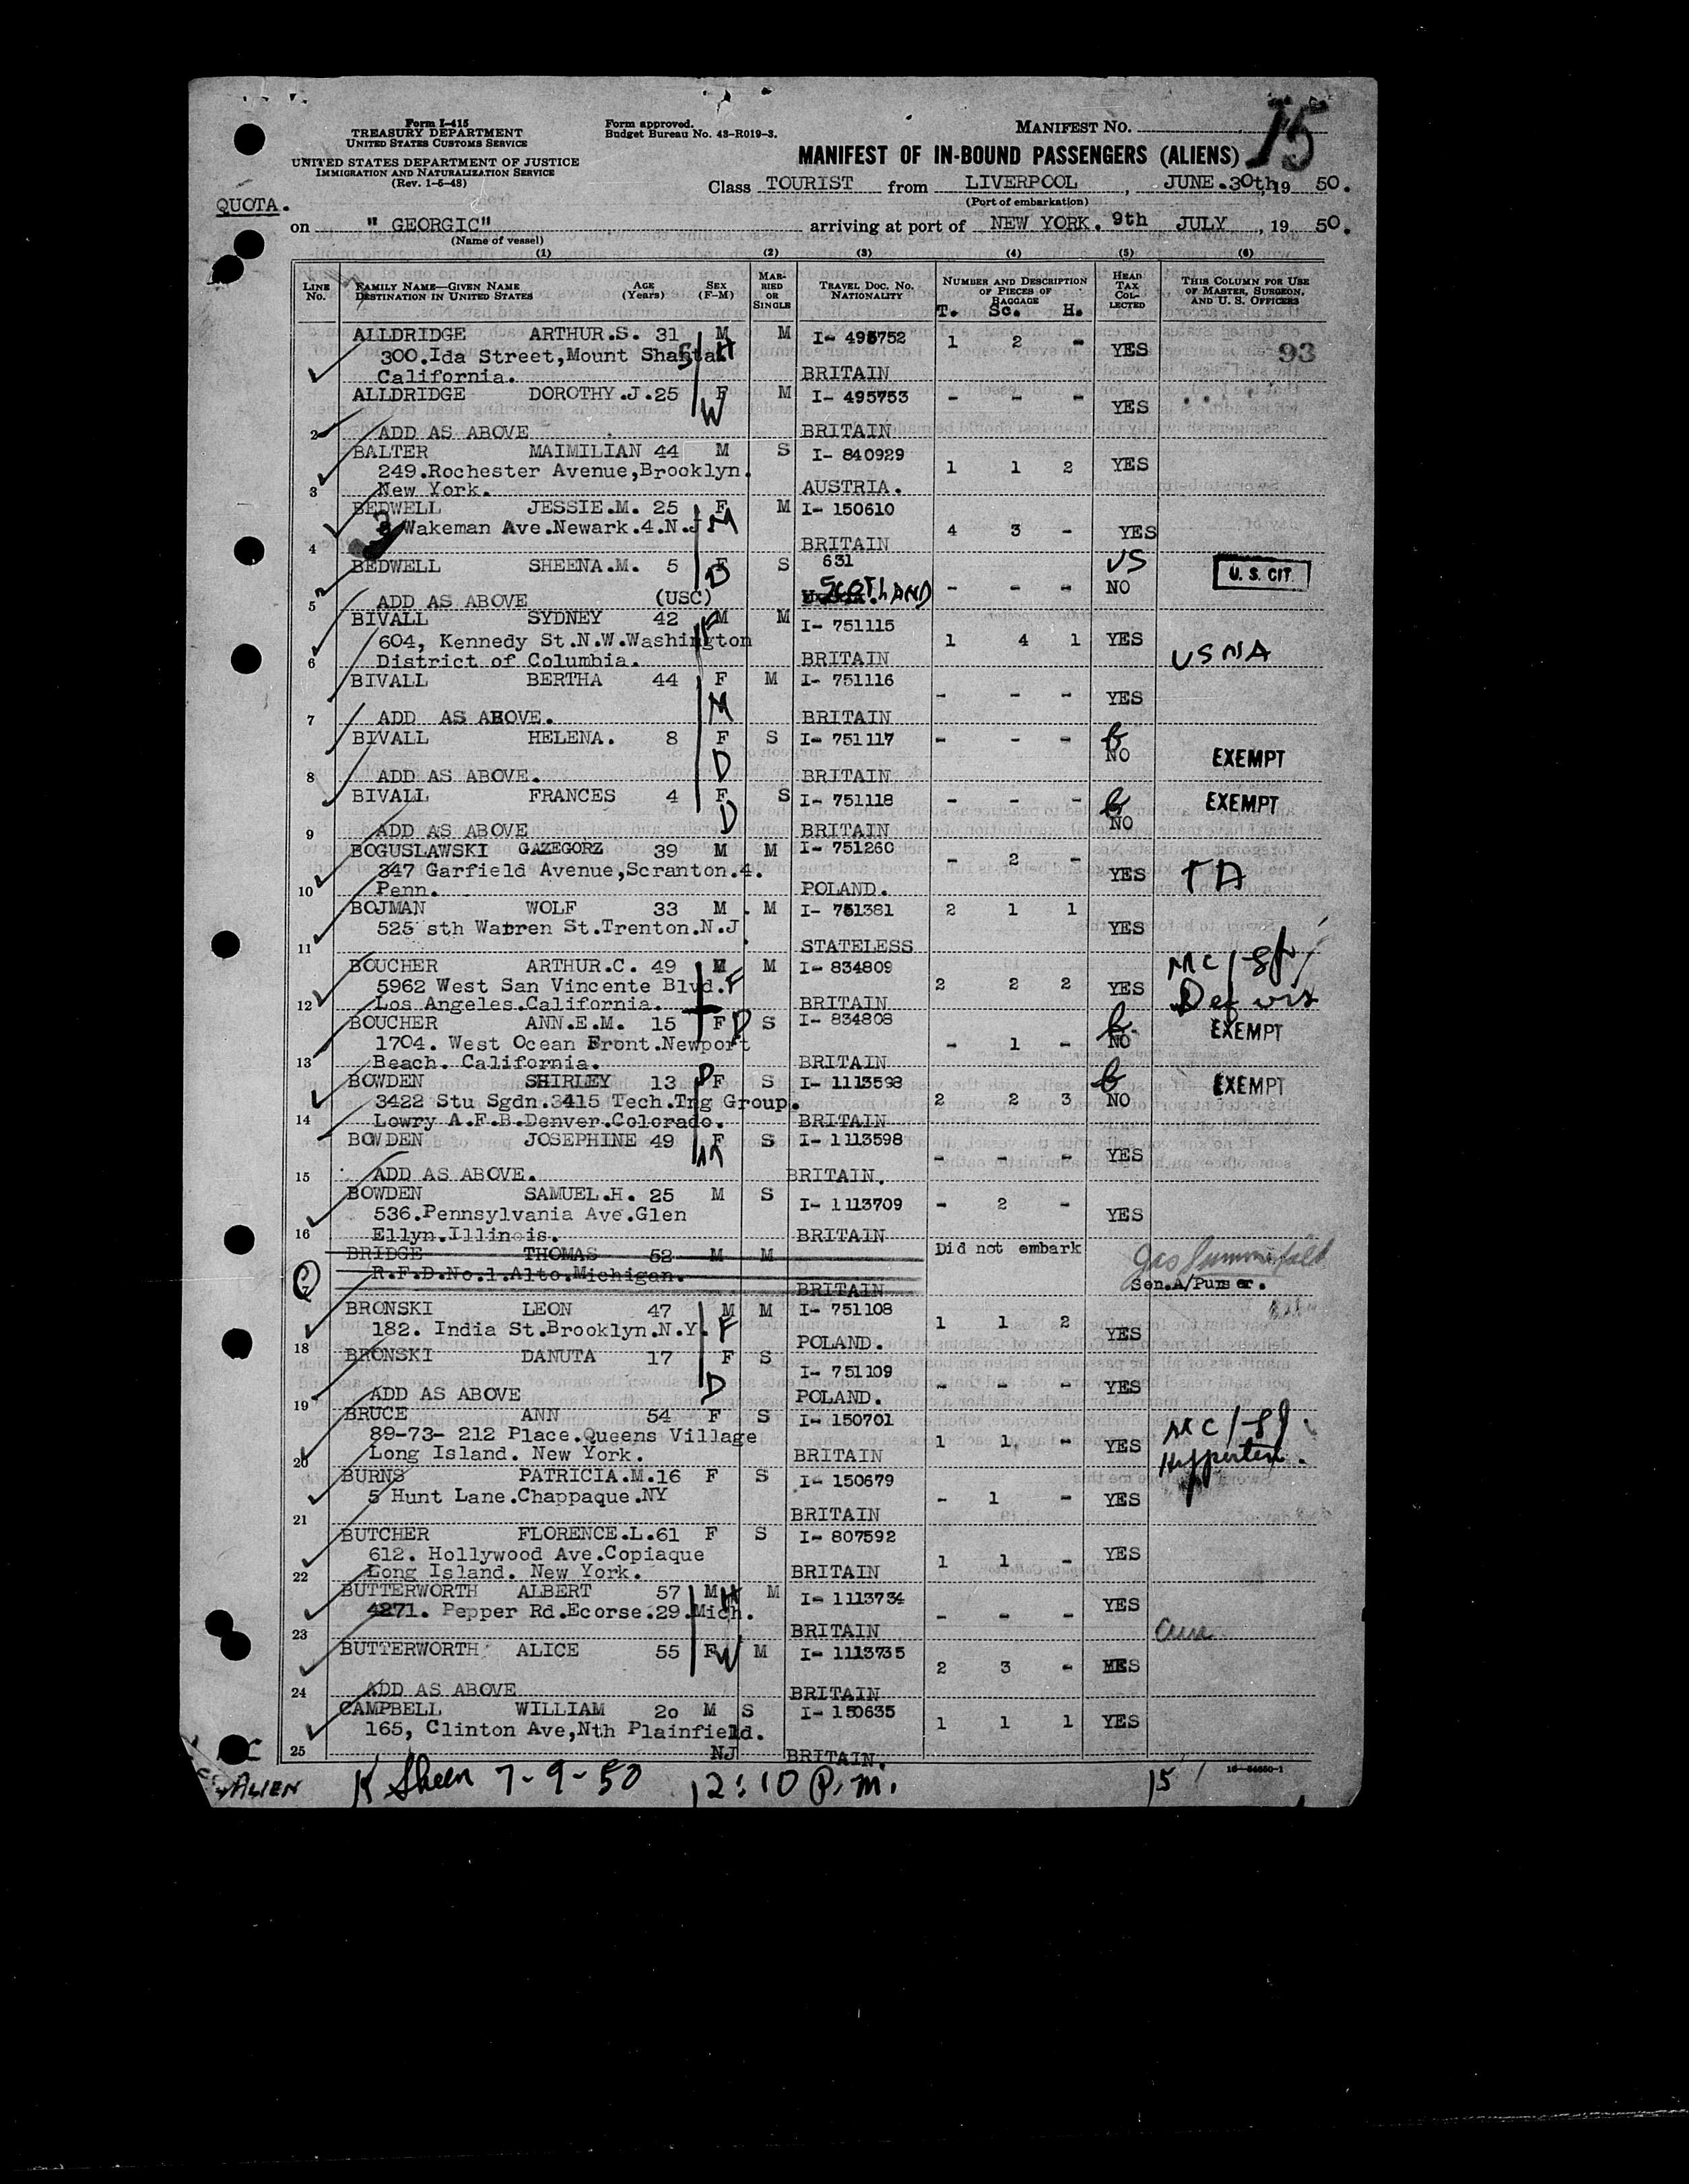 Form I-415
TREASURY DEPARTMENT
UNITED STATES CUSTOMS SERVICE
UNITED STATES DEPARTMENT OF JUSTICE
IMMIGRATION AND NATURALIZATION SERVICE
(Rev. 1-5-48)
Form approved.
Budget Bureau No. 43-R019-3.
MANIFEST NO.
15
MANIFEST OF IN-BOUND PASSENGERS (ALIENS)
Class TOURIST from LIVERPOOL, JUNE.30th, 19 50.
(Port of embarkation)
QUOTA.
on "GEORGIC" arriving at port of NEW YORK. 9th JULY, 19 50.
(Name of vessel)
(1) (2) (3) (4) (5) (6)
LINE NO. FAMILY NAME—GIVEN NAME DESTINATION IN UNITED STATES AGE (Years) SEX (F-M) MARRIED OR SINGLE TRAVEL DOC. NO. NATIONALITY NUMBER AND DESCRIPTION OF PIECES OF BAGGAGE HEAD TAX COLLECTED THIS COLUMN FOR USE OF MASTER, SURGEON, AND U. S. OFFICERS
T. Sc. H.
ALLDRIDGE ARTHUR.S. 31 M H M I- 495752 1 2 - YES 93
300.Ida Street,Mount Shasta
California. BRITAIN
ALLDRIDGE DOROTHY.J.25 F W M I- 495753 - - - YES
2 ADD AS ABOVE BRITAIN
BALTER MAIMILIAN 44 M S I- 840929 1 1 2 YES
249.Rochester Avenue,Brooklyn.
3 New York. AUSTRIA.
BEDWELL JESSIE.M. 25 F M M I- 150610 4 3 - YES
Wakeman Ave.Newark.4.N.J.
4 BRITAIN
BEDWELL SHEENA.M. 5 F D S 631 - - - US NO U. S. CIT.
5 ADD AS ABOVE (USC) SCOTLAND
BIVALL SYDNEY 42 M F M I- 751115 1 4 1 YES USNA
604, Kennedy St.N.W.Washington
6 District of Columbia. BRITAIN
BIVALL BERTHA 44 F M M I- 751116 - - - YES
7 ADD AS ABOVE. BRITAIN
BIVALL HELENA. 8 F D S I- 751117 - - - NO EXEMPT
8 ADD AS ABOVE. BRITAIN
BIVALL FRANCES 4 F D S I- 751118 - - - NO EXEMPT
9 ADD AS ABOVE BRITAIN
BOGUSLAWSKI GAZEGORZ 39 M M I- 751260 - 2 - YES
347 Garfield Avenue,Scranton.4.
10 Penn. POLAND.
BOJMAN WOLF 33 M M I- 751381 2 1 1 YES
525 sth Warren St.Trenton.N.J.
11 STATELESS
BOUCHER ARTHUR.C. 49 M F M I- 834809 2 2 2 YES
5962 West San Vincente Blvd.
12 Los Angeles.California. BRITAIN
BOUCHER ANN.E.M. 15 F D S I- 834808 - 1 - NO EXEMPT
1704. West Ocean Front.Newport
13 Beach. California. BRITAIN
BOWDEN SHIRLEY 13 D F S I- 1113598 2 2 3 NO EXEMPT
3422 Stu Sgdn.3415 Tech.Tng Group.
14 Lowry A.F.B.Denver.Colorado. BRITAIN
BOWDEN JOSEPHINE 49 F M S I- 1113598 - - - YES
15 ADD AS ABOVE. BRITAIN.
BOWDEN SAMUEL.H. 25 M S I- 1113709 - 2 - YES
536.Pennsylvania Ave.Glen
16 Ellyn.Illinois. BRITAIN
BRIDGE THOMAS 52 M M Did not embark
R.F.D.No.1.Alto.Michigan. Sen.A/Purser.
BRITAIN
BRONSKI LEON 47 M F M I- 751108 1 1 2 YES
182. India St.Brooklyn.N.Y.
18 POLAND.
BRONSKI DANUTA 17 F D S I- 751109 - - - YES
19 ADD AS ABOVE POLAND.
BRUCE ANN 54 F S I- 150701 1 1 - YES
89-73- 212 Place.Queens Village
20 Long Island. New York. BRITAIN
BURNS PATRICIA.M.16 F S I- 150679 - 1 - YES
5 Hunt Lane.Chappaque.NY
21 BRITAIN
BUTCHER FLORENCE.L.61 F S I- 807592 1 1 - YES
612. Hollywood Ave.Copiaque
22 Long Island. New York. BRITAIN
BUTTERWORTH ALBERT 57 M H M I- 1113734 - - - YES
4271. Pepper Rd.Ecorse.29.Mich.
23 BRITAIN
BUTTERWORTH ALICE 55 F W M I- 1113735 2 3 - YES
24 ADD AS ABOVE BRITAIN
CAMPBELL WILLIAM 20 M S I- 150635 1 1 1 YES
165, Clinton Ave,Nth Plainfield.
25 NJ BRITAIN.
16—54650-1
ALIEN K Sheen 7-9-50 12:10 P.m. 15